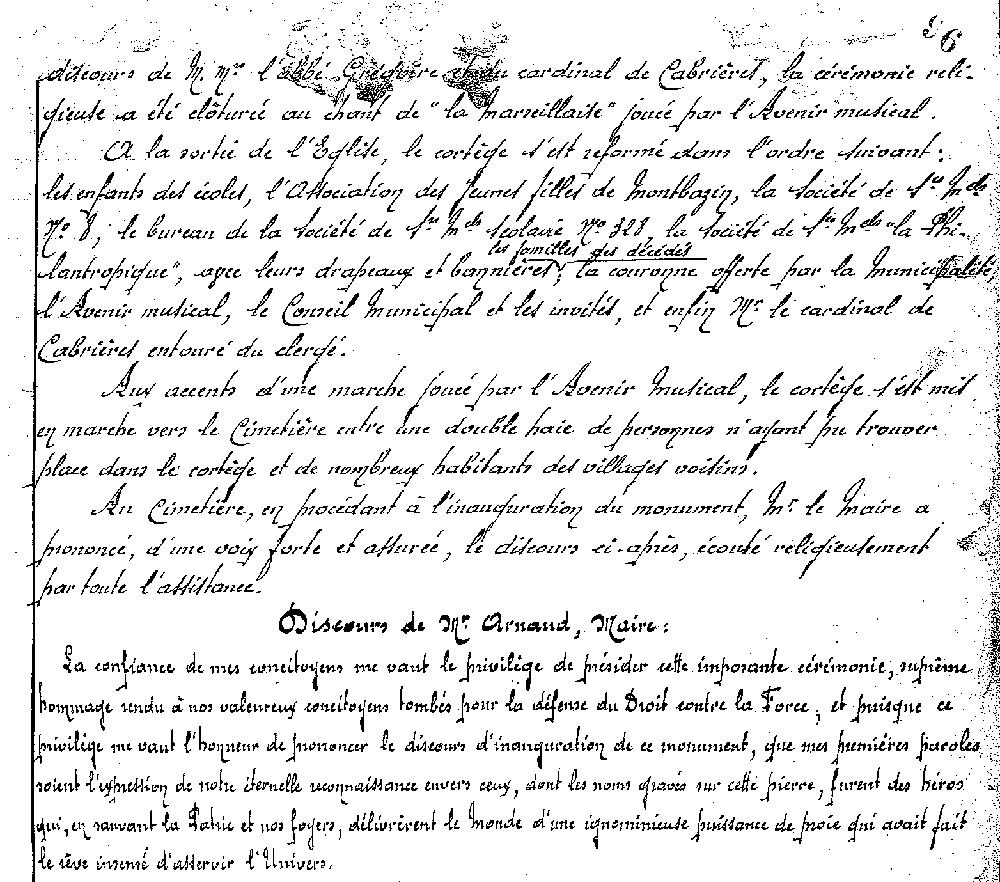 6
discours de M. Mgr l'abbé Grégoire et du cardinal de Cabrières, la cérémonie reli-
gieuse a été clôturée au chant de "la Marseillaise" jouée par l'Avenir musical.
A la sortie de l'Eglise, le cortège s'est reformé dans l'ordre suivant:
les enfants des écoles, l'Association des Jeunes filles de Montbazin, la Société de Srs Mels
No 8, le bureau de la Société de Srs Mels scolaire No 328, la Société de Srs Mels "la Phi-
les familles des décédés
lantropique", avec leurs drapeaux et bannières, la couronne offerte par la Municipalité
l'Avenir musical, le Conseil Municipal et les invités, et enfin Mr le cardinal de
Cabrières entouré du clergé.
Aux accents d'une marche jouée par l'Avenir Musical, le cortège s'est mis
en marche vers le Cimetière entre une double haie de personnes n'ayant pu trouver
place dans le cortège et de nombreux habitants des villages voisins.
Au Cimetière, en procédant à l'inauguration du monument, Mr le Maire a
prononcé, d'une voix forte et assurée, le discours ci-après, écouté religieusement
par toute l'assistance.
Discours de Mr Arnaud, Maire:
La confiance de mes concitoyens me vaut le privilège de présider cette imposante cérémonie, suprême
hommage rendu à nos valeureux concitoyens tombés pour la défense du Droit contre la Force, et puisque ce
privilège me vaut l'honneur de prononcer le discours d'inauguration de ce monument, que mes premières paroles
soient l'expression de notre éternelle reconnaissance envers ceux, dont les noms gravés sur cette pierre, furent des héros
qui, en sauvant la Patrie et nos foyers, délivrèrent le Monde d'une ignominieuse puissance de proie qui avait fait
le rêve insensé d'asservir l'Univers.